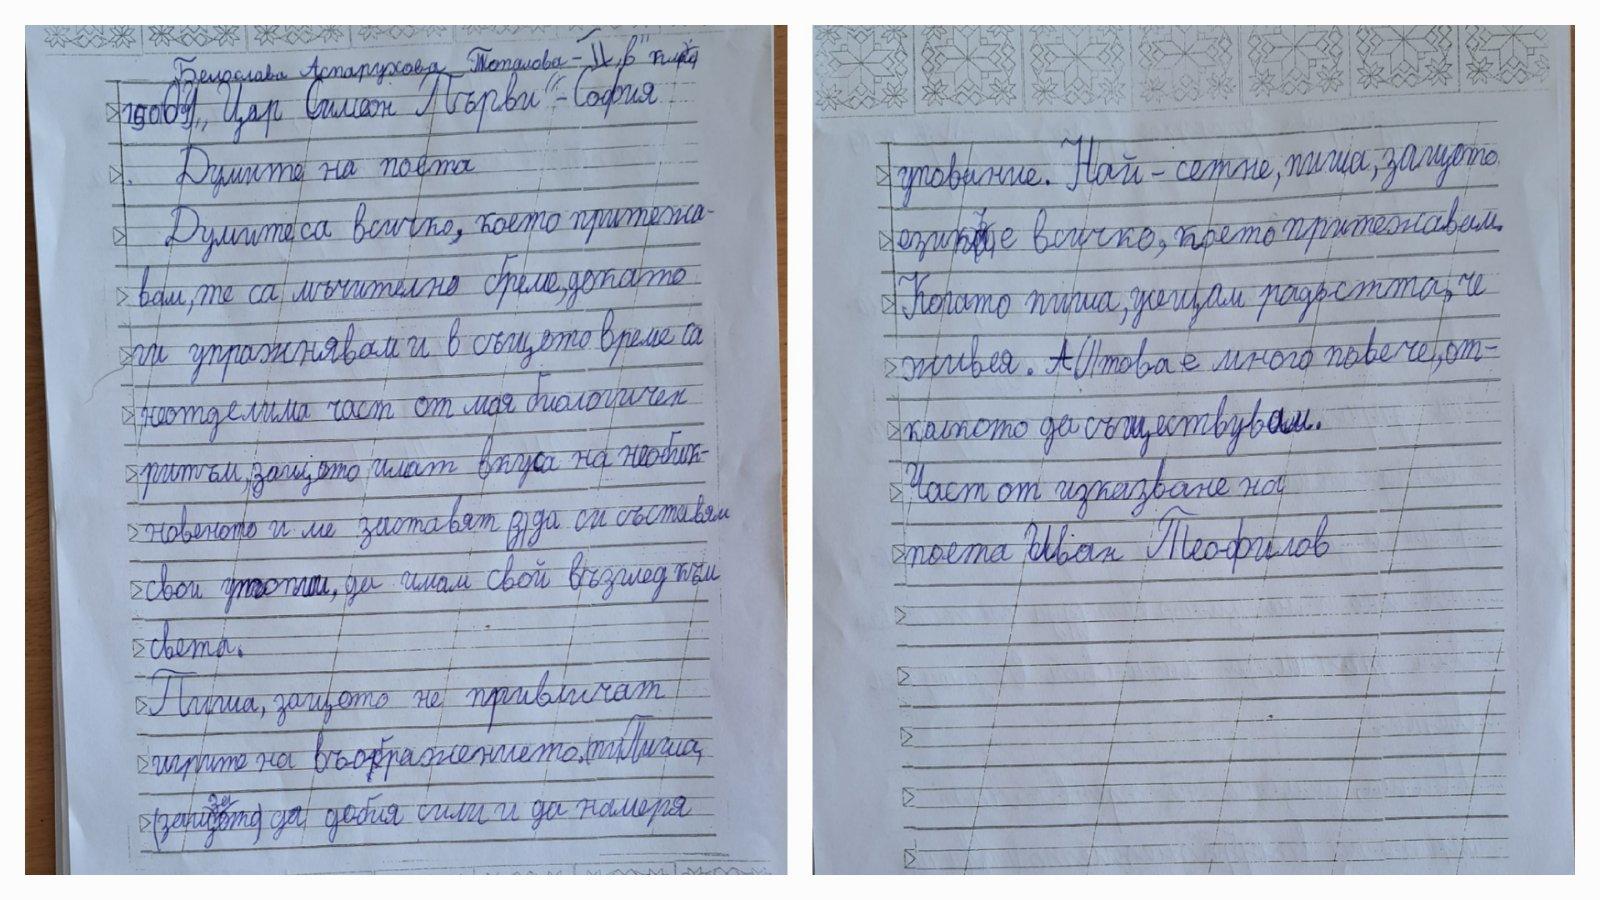 Белослава Аспарухова Топалова - II "в" клас
150 ОУ „Цар Симеон Първи“ - София
Думите на поета
Думите са всичко, което притежа-
вам, те са мъчително бреме, докато
ги упражнявам и в същото време са
неотделима част от моя биологичен
ритъм, защото имат вкуса на необик-
новеното и ме заставят да си съставям
свои утопии, да имам свой възглед към
света.
Пиша, защото не привличат
игрите на въображението. Пиша,
(защото) за да добия сили и да намеря
упование. Най-сетне, пиша, защото
езикът е всичко, което притежавам.
Когато пиша, усещам радостта, че
живея. А това е много повече, от-
колкото да съществувам.
Част от изказване на
поета Иван Теофилов